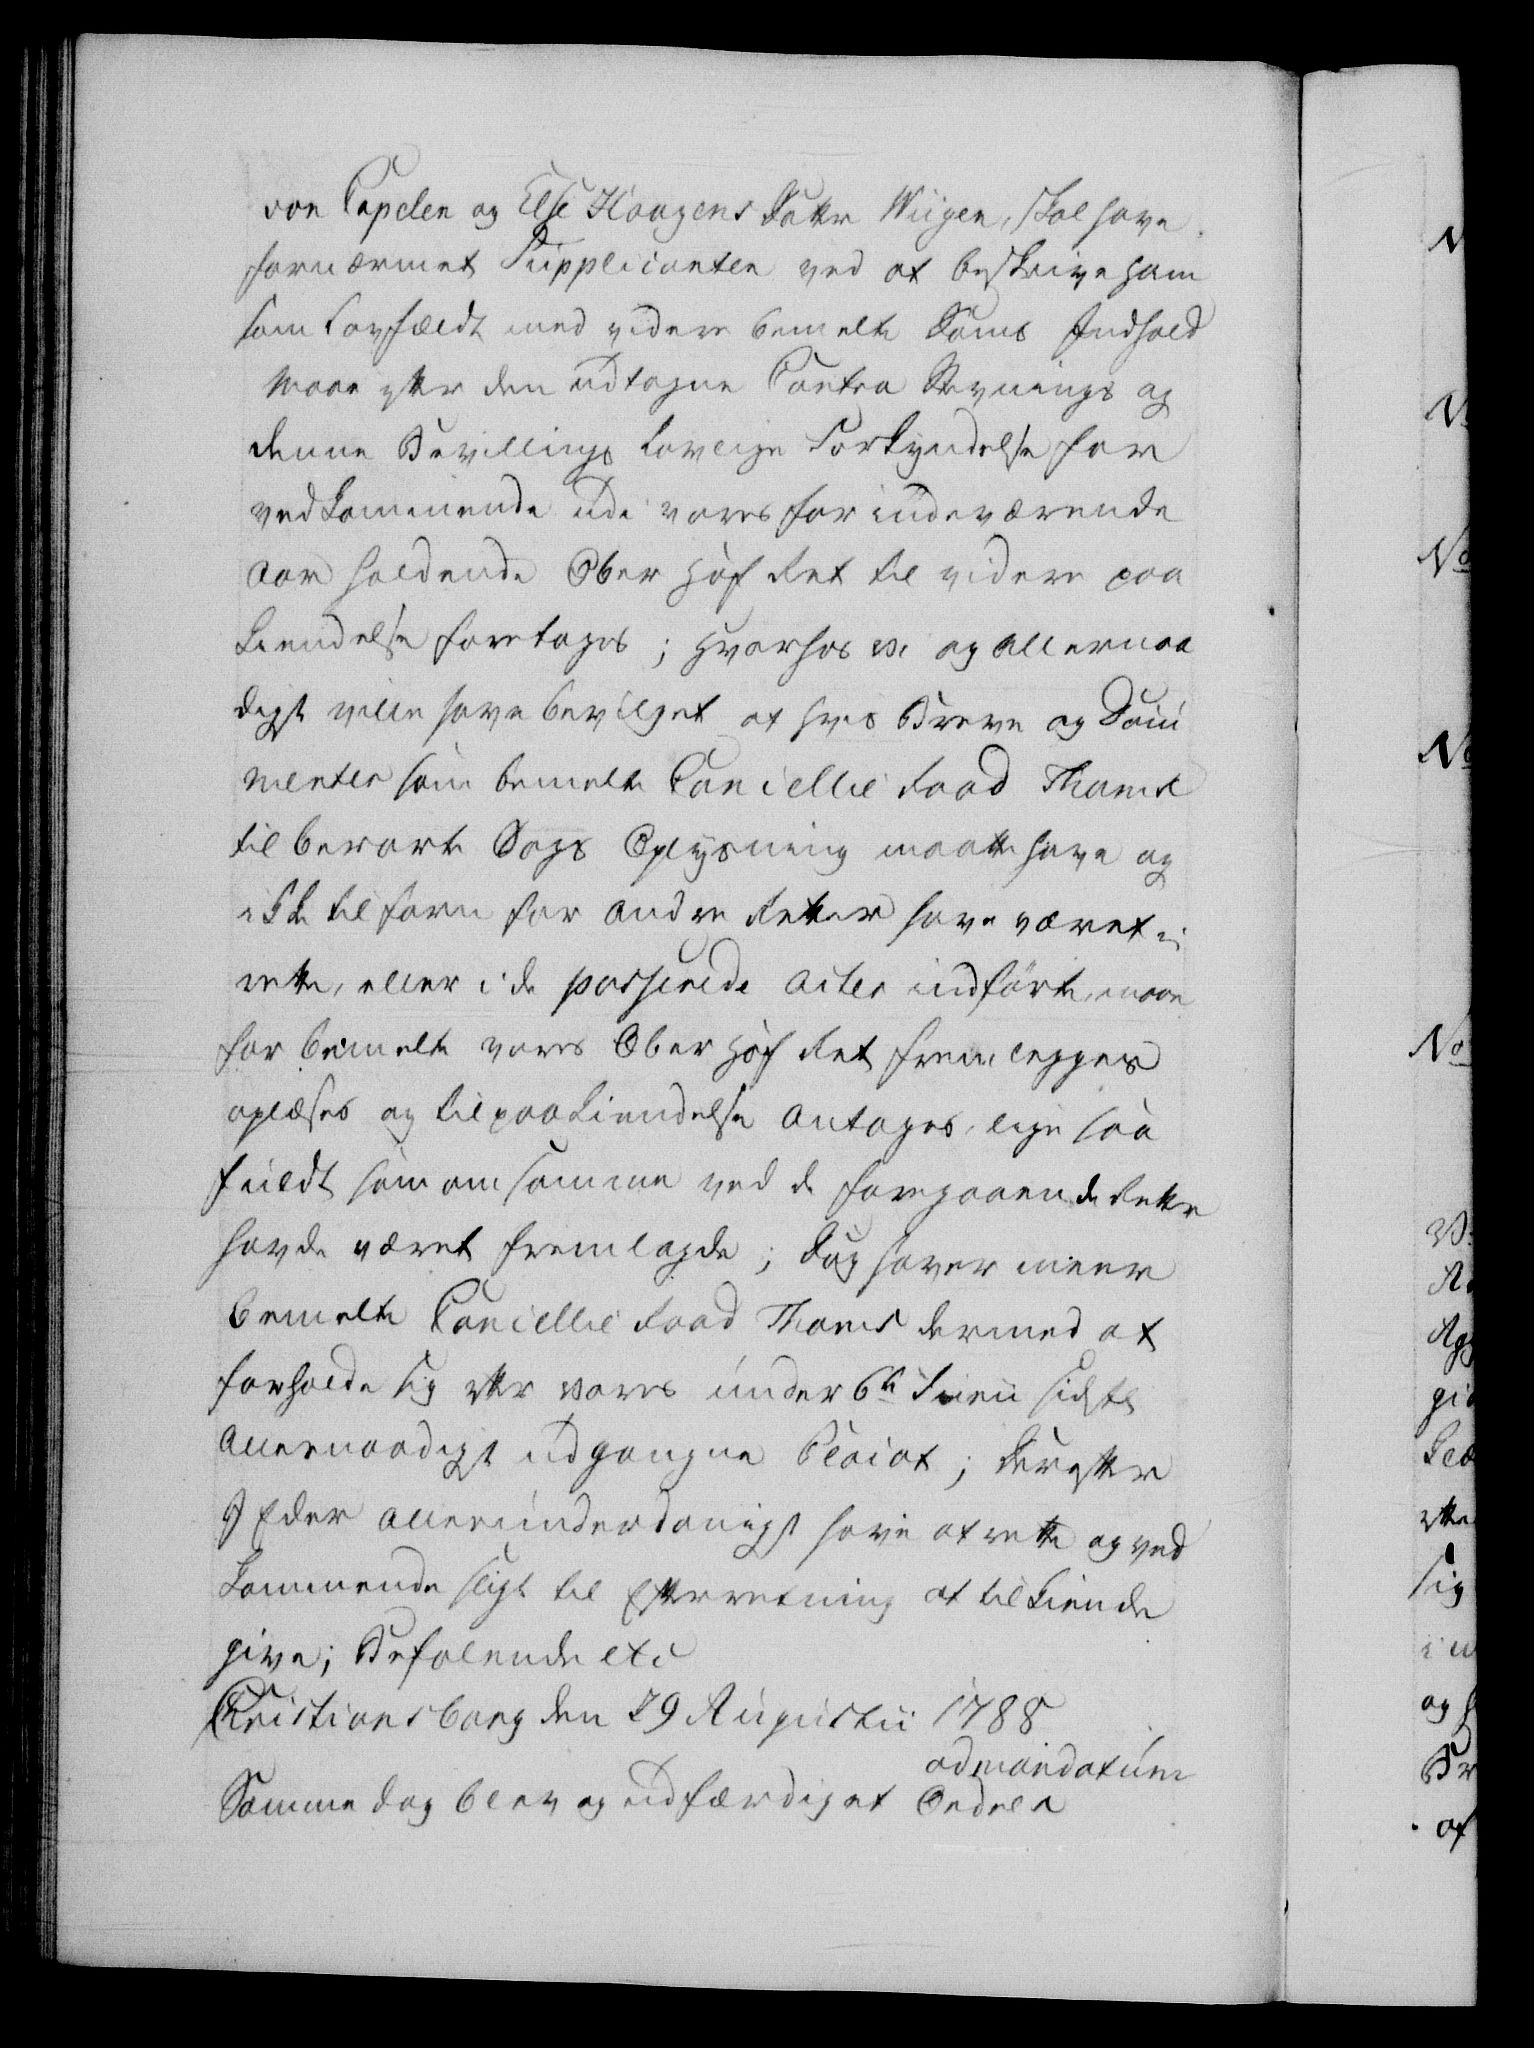 von Capelen og Else Haagens Datter Wiigen, skal have
fornærmet Supplicanten ved at beskrive ham
som Lovfældt med videre bemelte Doms Indhold
Maae efter den udtagne Contra Stevnings og
denne Bevillings Lovlige Forkyndelse for
vedkommende udi vores for indeværende
Aar holdende Ober Hof Ret til videre paa
kiendelse foretages; hvorhos vi og Allernaa
digst ville have bevilget at hvis Breve og Docu
menter som bemelte Cancellie Raad Thams
til berørte Sags Oplysning maatte have og
ikke tilforn for Andre Retter have været i
rette, eller i de passerede Acter indførte, maae
for bemelte vores Ober Hof Ret fremlegges
oplæses og til paakiendelse Antages, lige saa
fuldt som om samme ved de foregaaende Rette
havde været fremlagde; Dog haver meer
bemelte Cancellie Raad Thams dermed at
forholde sig efter vores under 6te Junii sidste
Allernaadigst udgangne Placat; Derefter
I Eder Allerunderdanigst have at rette og ved
kommende sligt til Efterretning at tilkiende
give; Befalende etc
Christiansborg den 29 Augustii 1788
ad mandatum
Samme dag blev og udfærdiget Ordre
N
N
No
No
No
sig
og
af